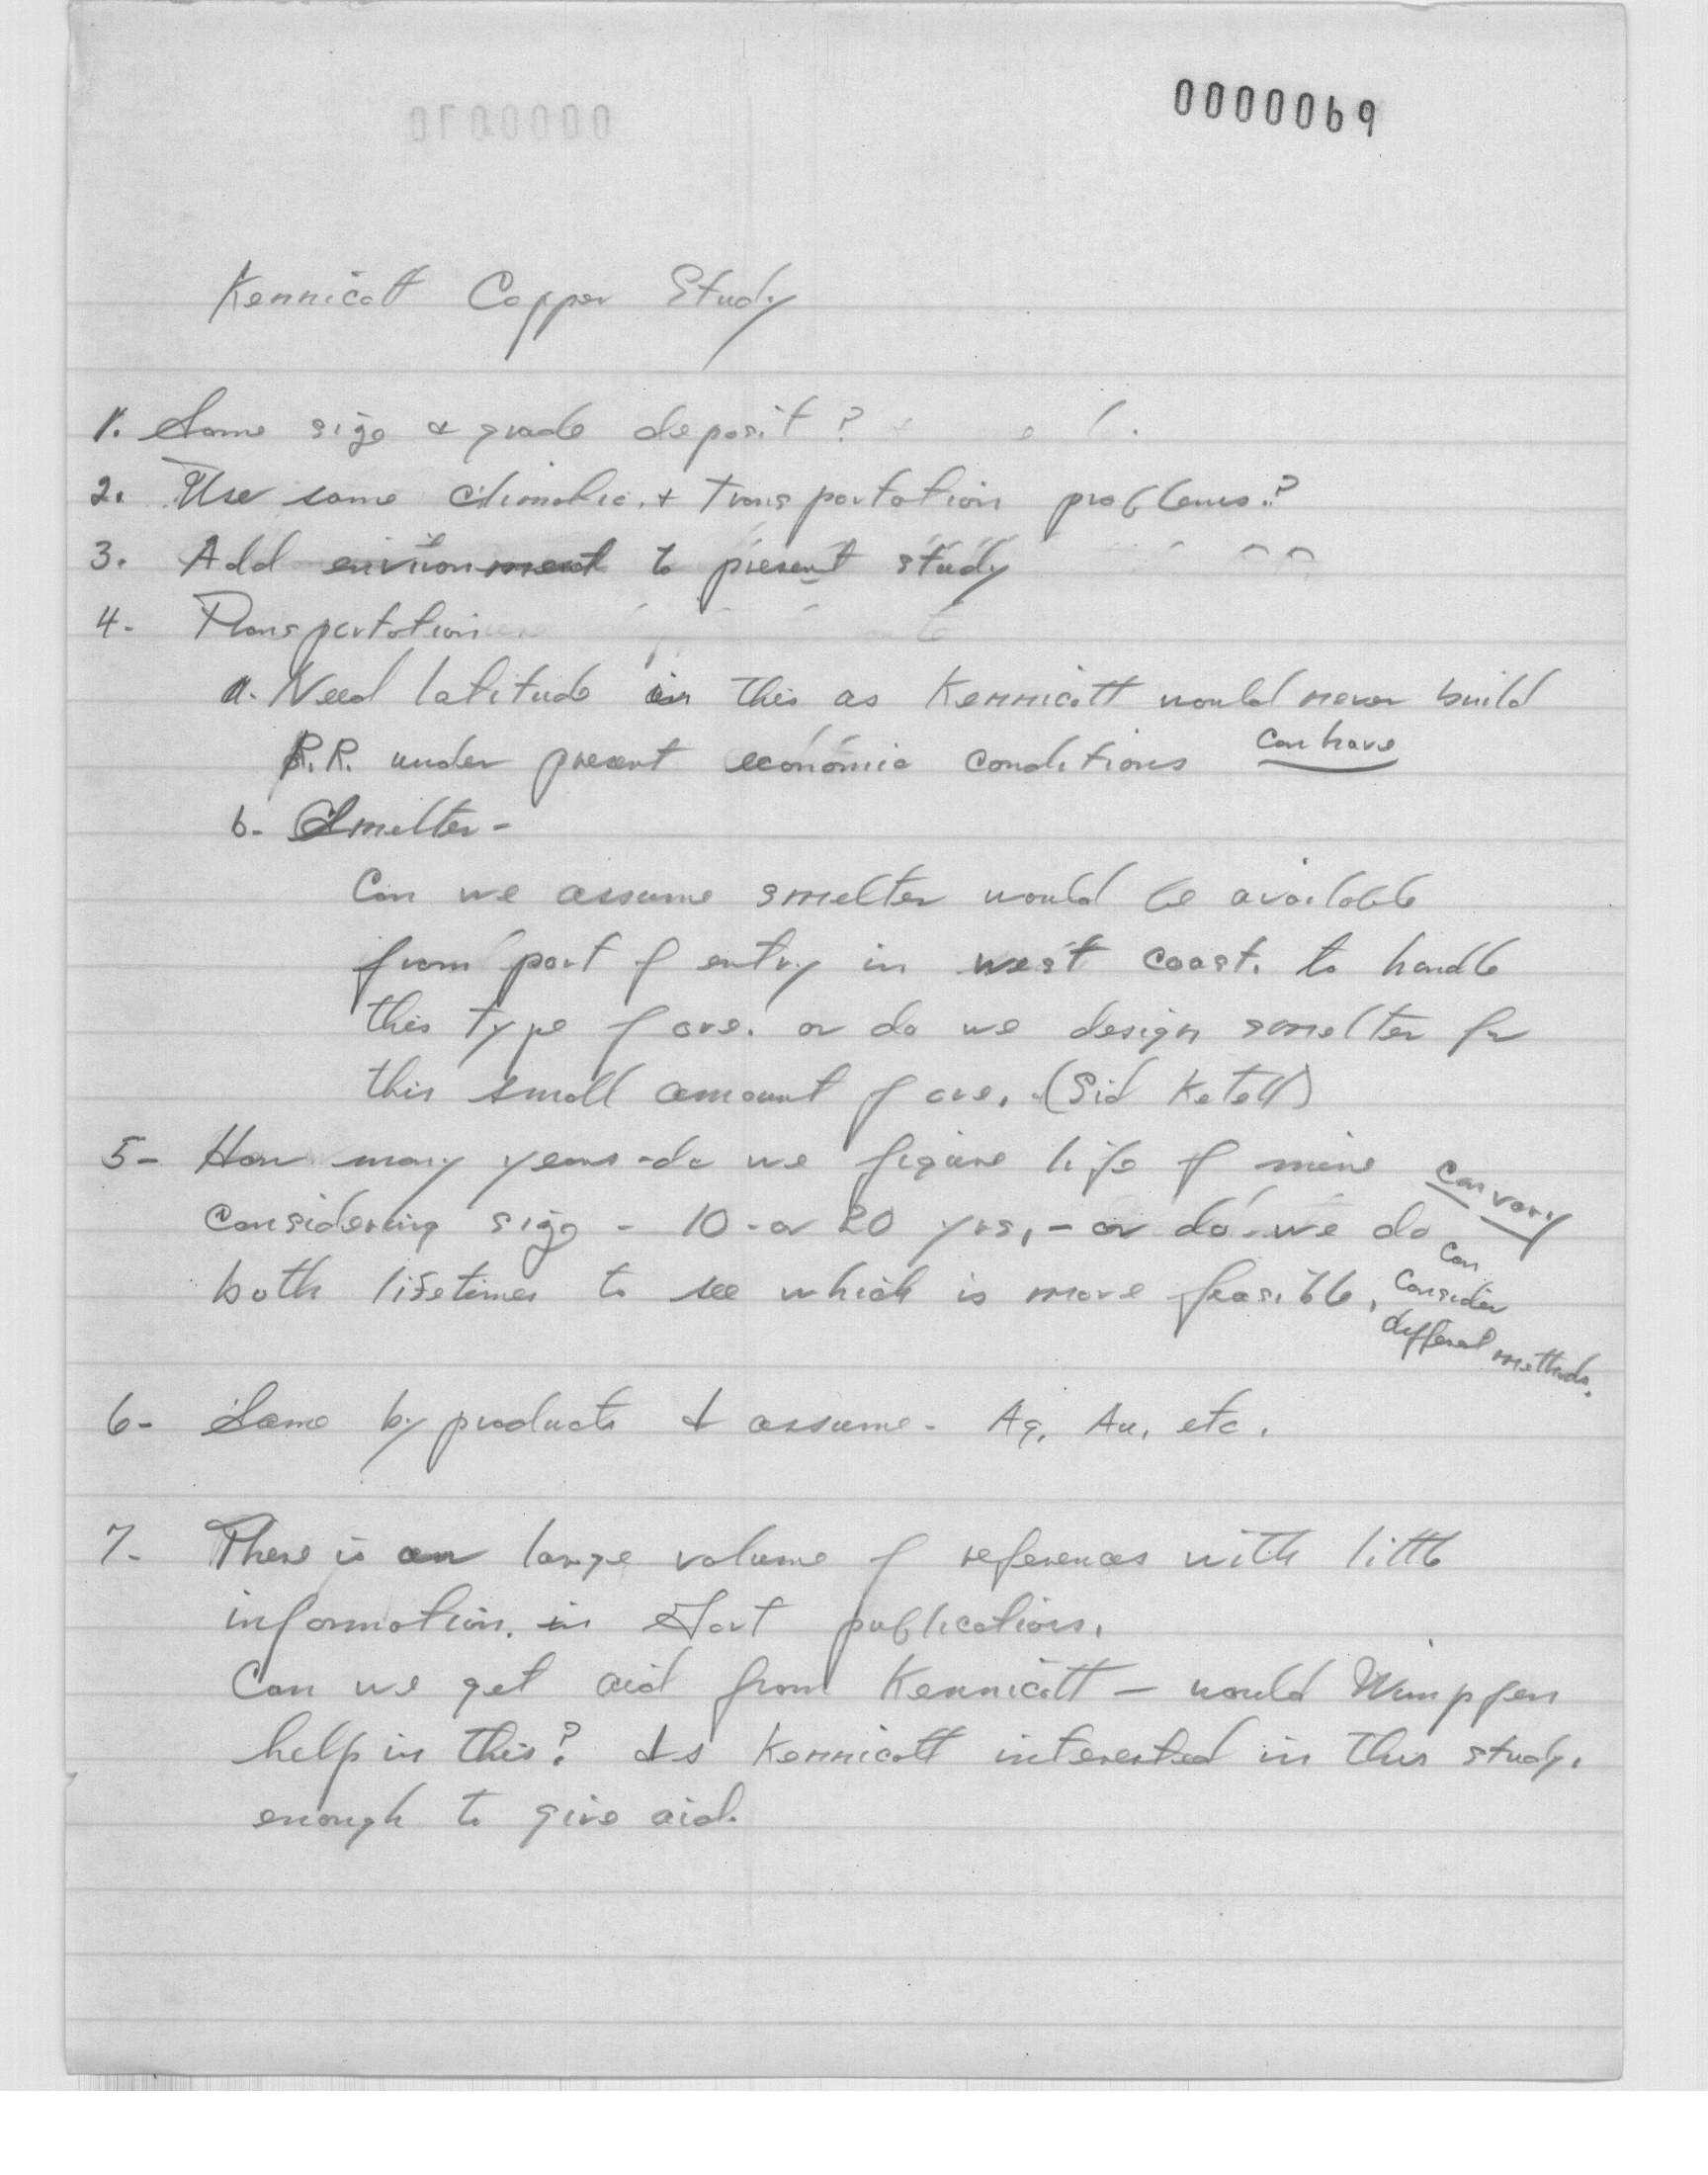 0000069
Kennicott Copper Study
1. Same size & grade deposit?
2. Use same climatic. + transportation problems.?
3. Add environment to present study
4- Transportation
a. Need latitude in this as Kennicott would never build
R.R. under present economic conditions can have
b- Smelter-
Can we assume smelter would be available
from port of entry in west coast. to handle
this type of ore. or do we design smelter for
this small amount of ore. (Sid Katell)
5- How many years-do we figure life of mine can vary
considering size - 10-or 20 yrs, - or do we do
both lifetimes to see which is more feasible, can consider different methods.
6- Same by products I assume- Ag, Au, etc.
7- There is a large volume of references with little
information. in Govt publications.
Can we get aid from Kennicott - would Wimpfen
help in this? Is Kennicott interested in this study.
enough to give aid.